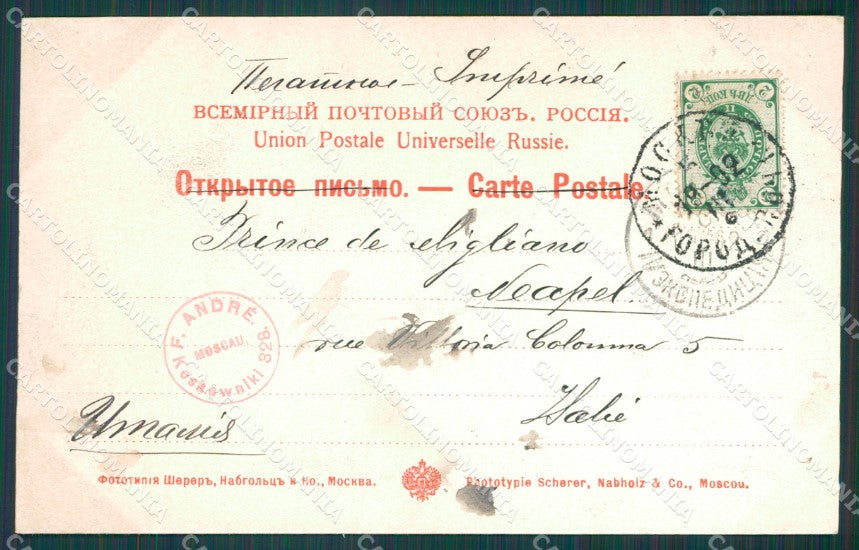 Печатное - Imprimé
ВСЕМІРНЫЙ ПОЧТОВЫЙ СОЮЗЪ. РОССІЯ.
Union Postale Universelle Russie.
Открытое письмо. — Carte Postale.
Prince de Migliano
Neapel
rue Vittoria Colonna 5
Italie
Италія
F. ANDRÉ.
MOSCAU.
828.
МОСКВА
ГОРОД
ЭКСПЕДИЦІЯ
Фототипія Шереръ, Набгольцъ и Ко., Москва.
Phototypie Scherer, Nabholz & Co., Moscou.
CARTOLINOMANIA